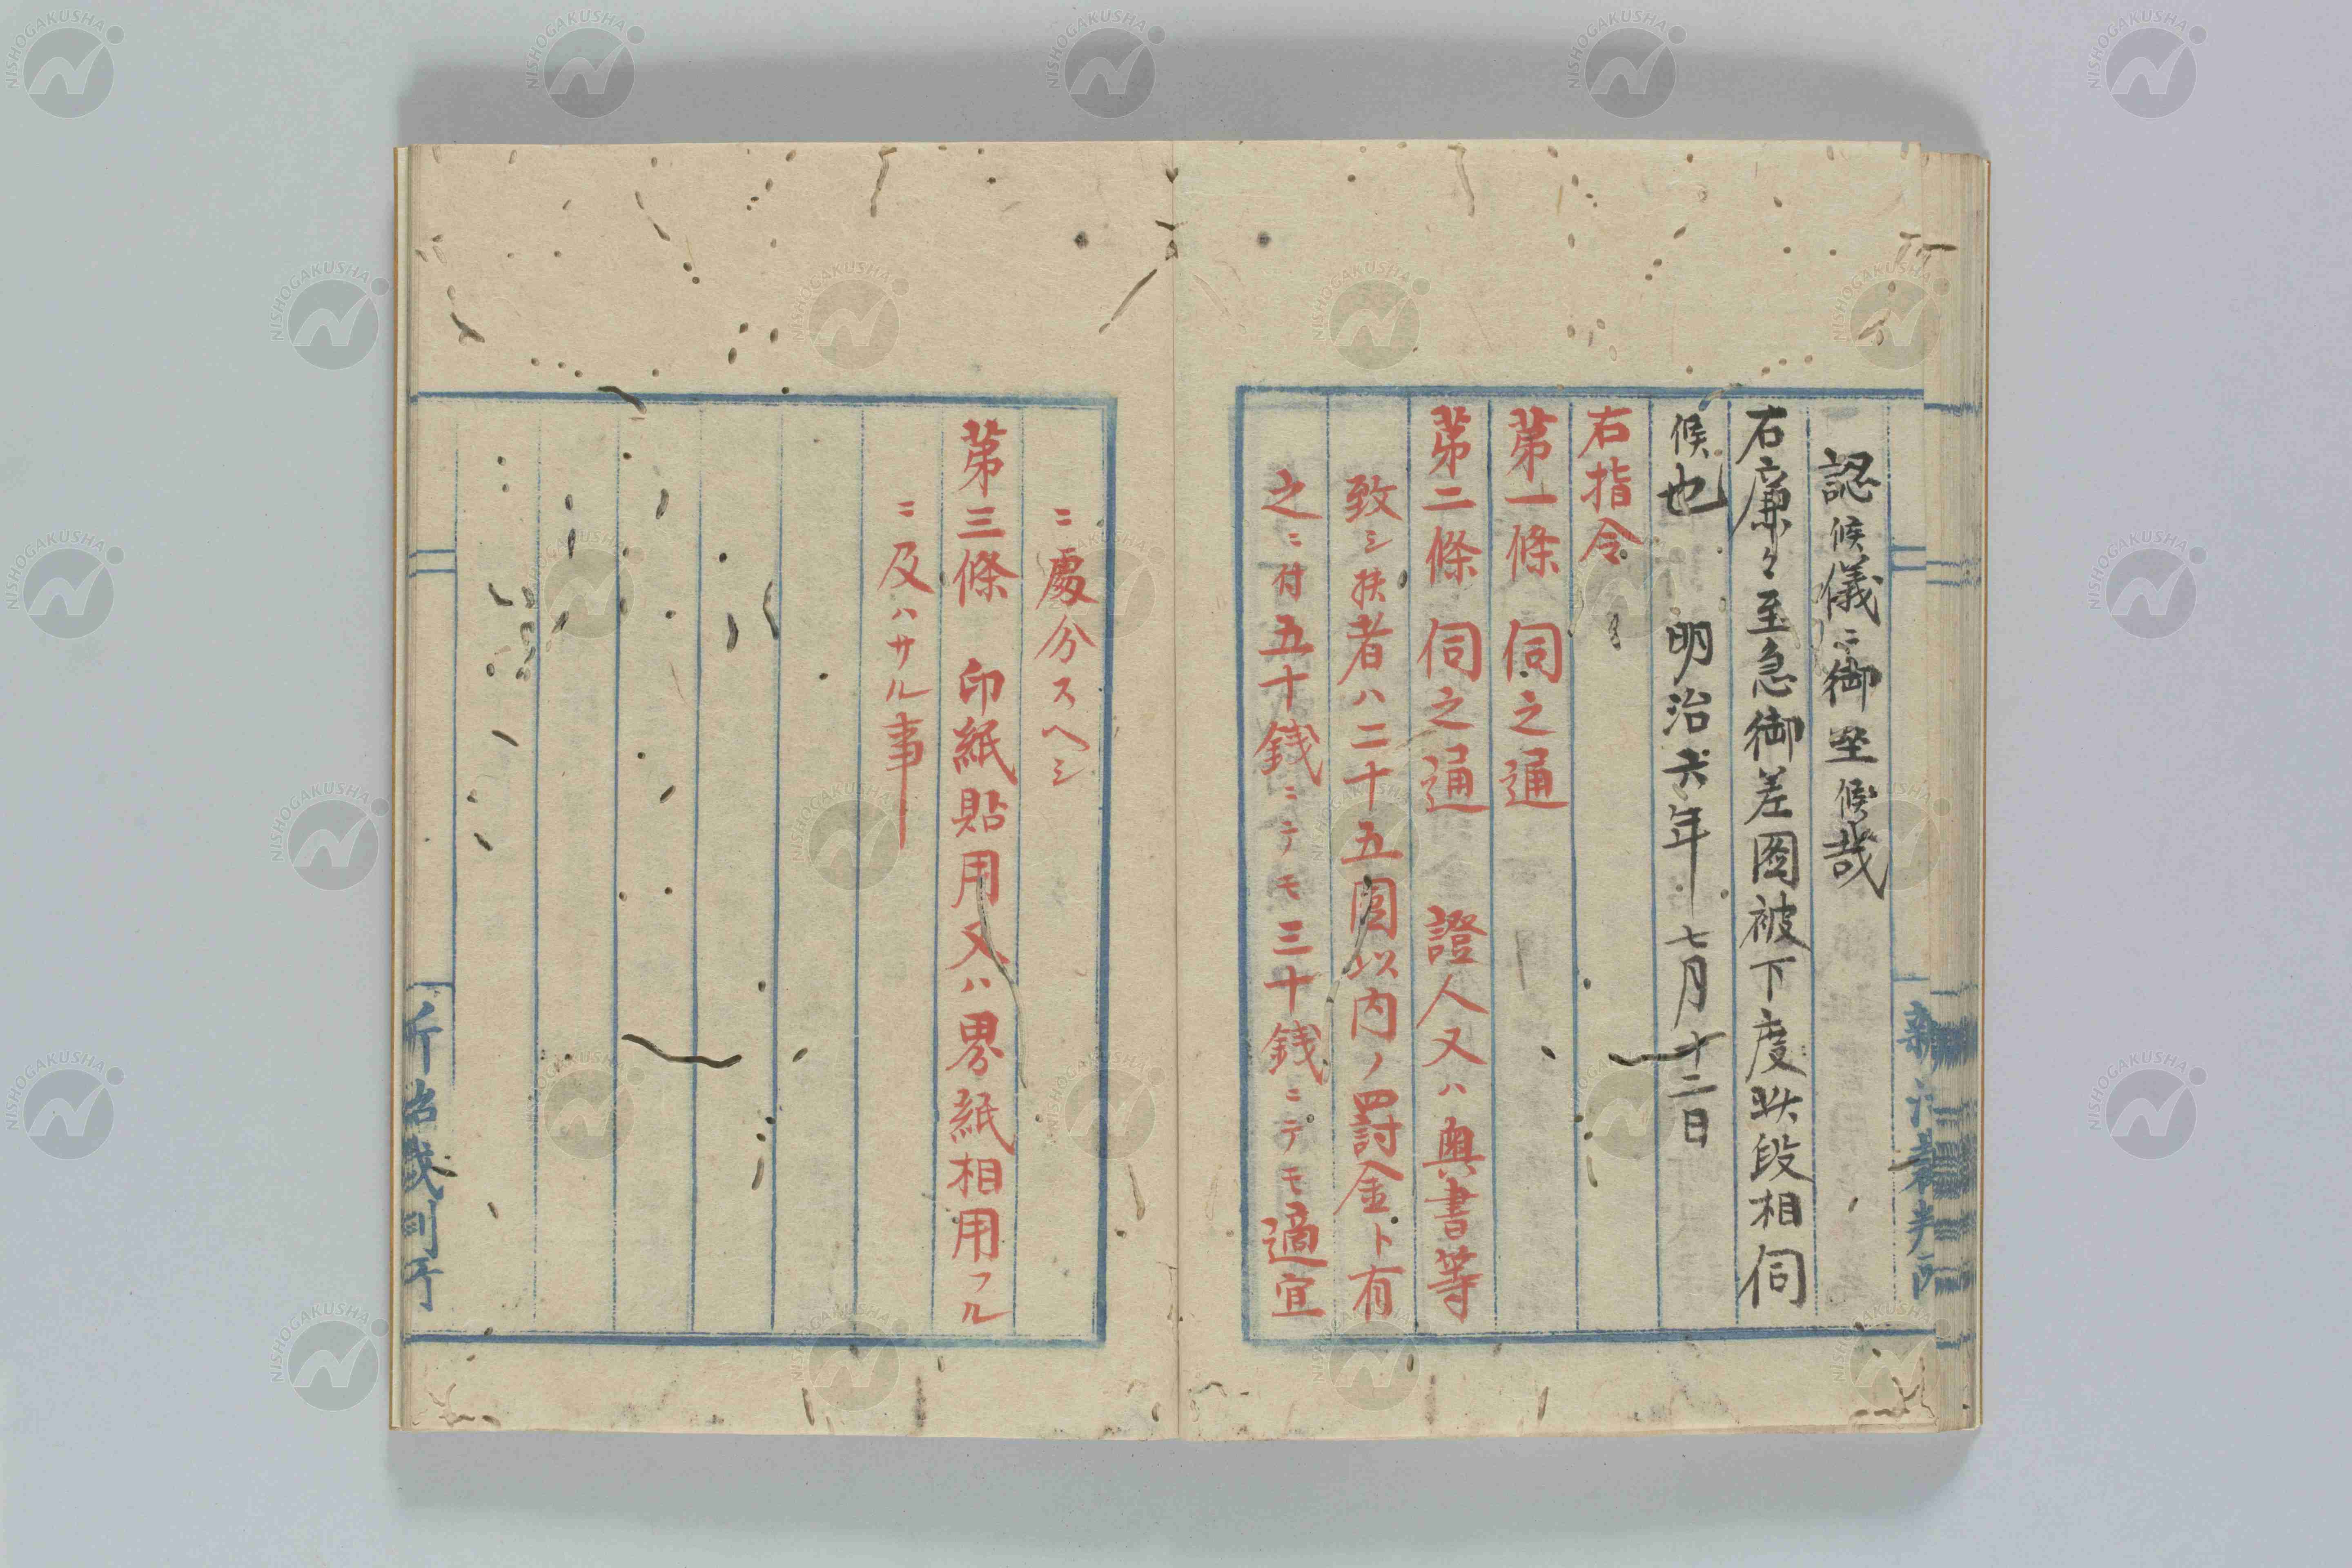 認候儀ニ御坐候哉
右廉々至急御差図被下度此段相伺
候也　明治六年七月十二日
右指令
第一條　伺之通
第二條　伺之通　證人又ハ奥書等
致シ扶者ハ二十五圓以内ノ罰金ト有
之ニ付五十銭ニテモ三十銭ニテモ適宜
ニ處分スヘシ
第三條　印紙貼用又ハ界紙相用フル
ニ及ハサル事
新治裁判所
NISHOGAKUSHA